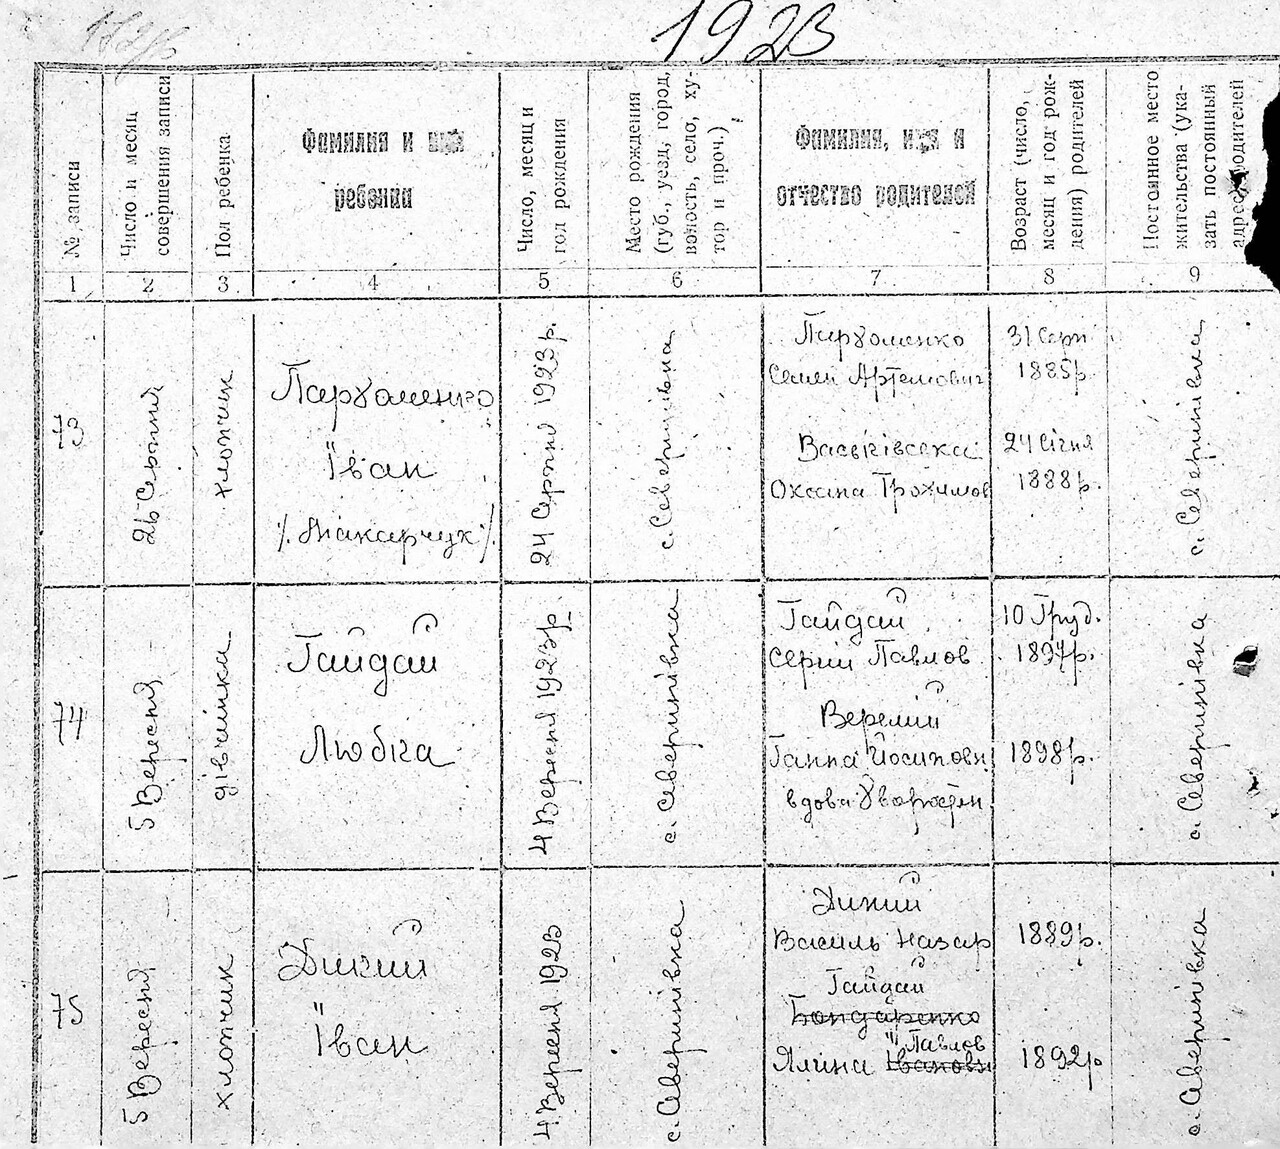 1923
№ записи
Число и месяц
совершения записи
Пол ребенка
Фамилия и имя
ребенка
Число, месяц и
год рождения
Место рождения
(губ., уезд, город,
волость, село, ху-
тор и проч.)
Фамилия, имя и
отчество родителей
Возраст (число,
месяц и год рож-
дения) родителей
Постоянное место
жительства (ука-
зать постоянный
адрес родителей
1 2 3 4 5 6 7 8 9
73
26 Серпня
хлопчик
Пархоменко
Іван
/. Макарчук /.
24 Серпня 1923 р.
с. Северинівка
Пархоменко
Семен Артемович
Оксана Трохимов
31 Серп
1885 р.
24 Січня
1888 р.
с. Северинівка
74
5 Вересня
дівчинка
Гайдай
Любка
4 Вересня 1923 р
с. Северинівка
Гайдай
Сергій Павлов
Веремій
Ганна Йосиповн
вдова
10 Груд.
1897 р.
1898 р.
с. Северинівка
75
5 Вересня
хлопчик
Дикий
Іван
4 Вересня 1923
с. Северинівка
Дикий
Василь Назар
Гайдай
Бондаренко
Павлов
Ялина Івановн
1889 р.
1892 р
с. Северинівка